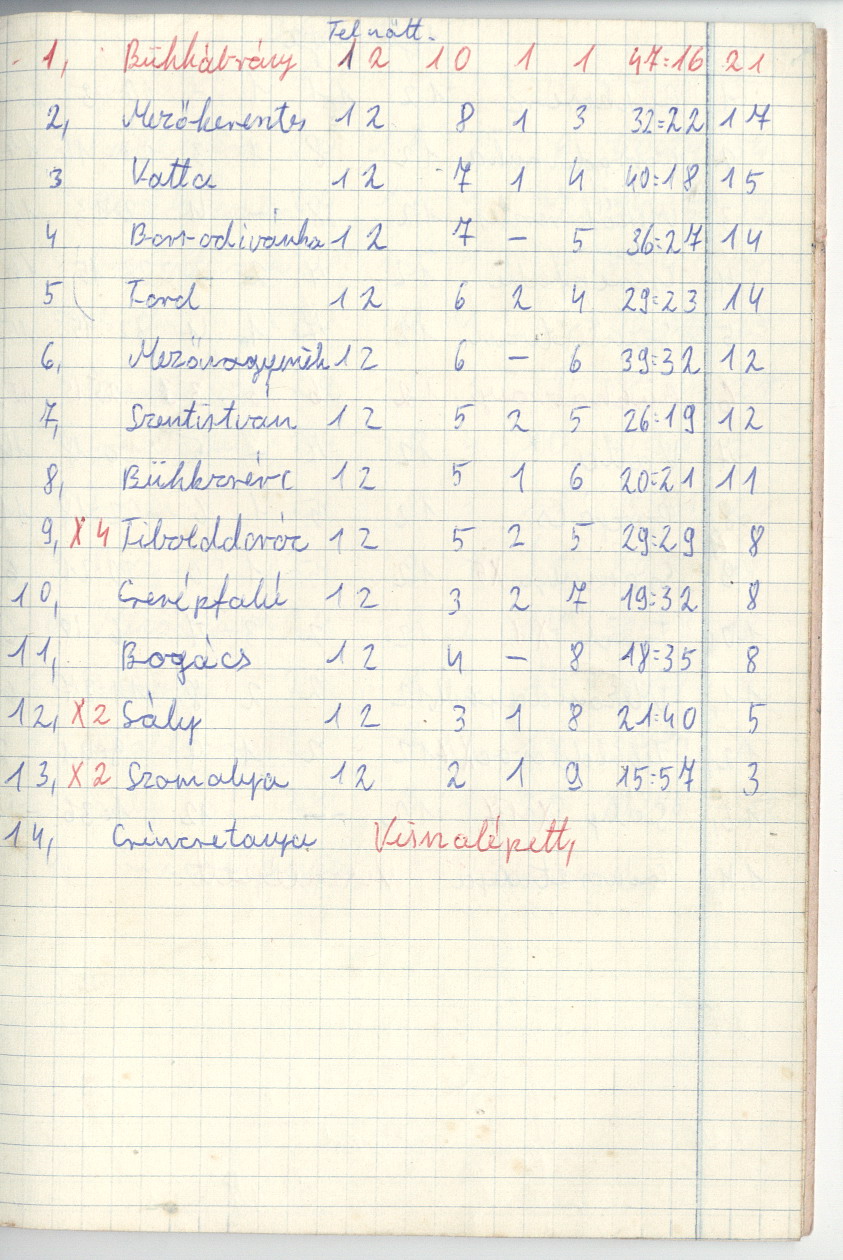 Felnőtt.
1, Bükkábrány 12 10 1 1 47:16 21
2, Mezőkeresztes 12 8 1 3 32:22 17
3 Vatta 12 7 1 4 40:18 15
4 Borsodivánka 12 7 – 5 36:27 14
5 Tard 12 6 2 4 29:23 14
6, Mezőnagymih 12 6 – 6 39:32 12
7, Szentistván 12 5 2 5 26:19 12
8, Bükkzsérc 12 5 1 6 20:21 11
9, X4 Tibolddaróc 12 5 2 5 29:29 8
10, Cserépfalú 12 3 2 7 19:32 8
11, Bogács 12 4 – 8 18:35 8
12, X2 Sály 12 3 1 8 21:40 5
13, X2 Szomolya 12 2 1 9 15:57 3
14, Csincsetanya Visszalépett,